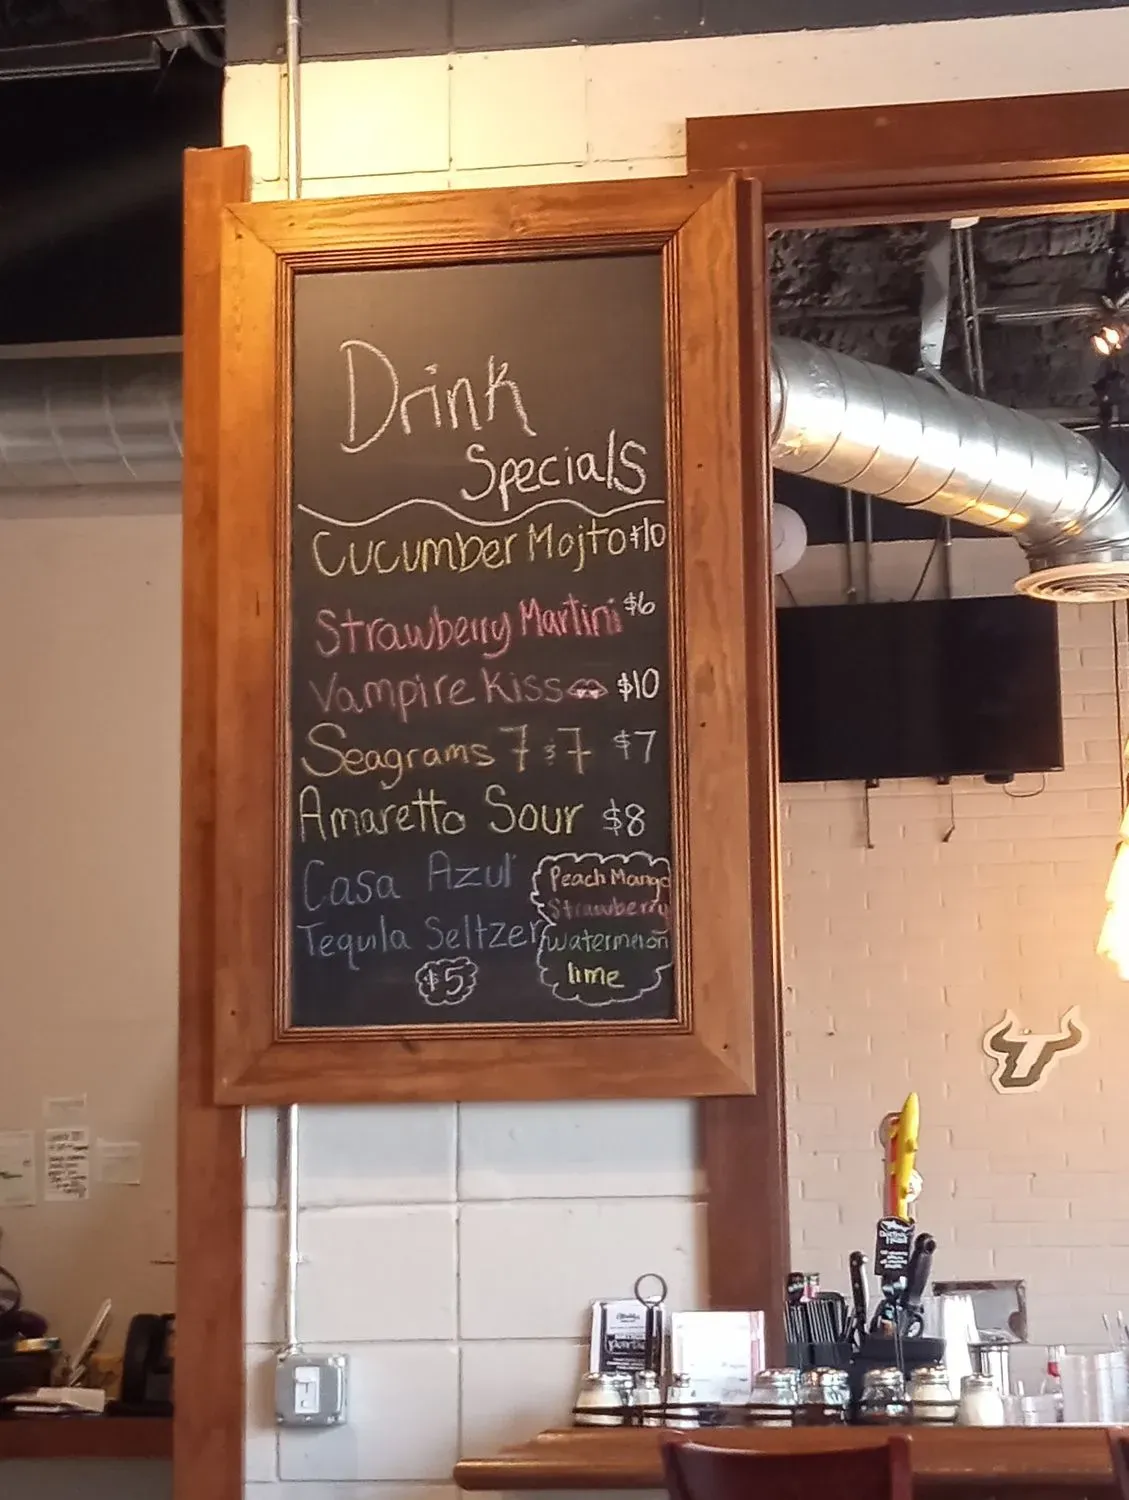 Drink
Specials
Cucumber Mojto $10
Strawberry Martini $6
Vampire Kiss $10
Seagrams 7 & 7 $7
Amaretto Sour $8
Casa Azul
Tequila Seltzer
$5
Peach Mango
Strawberry
Watermelon
lime